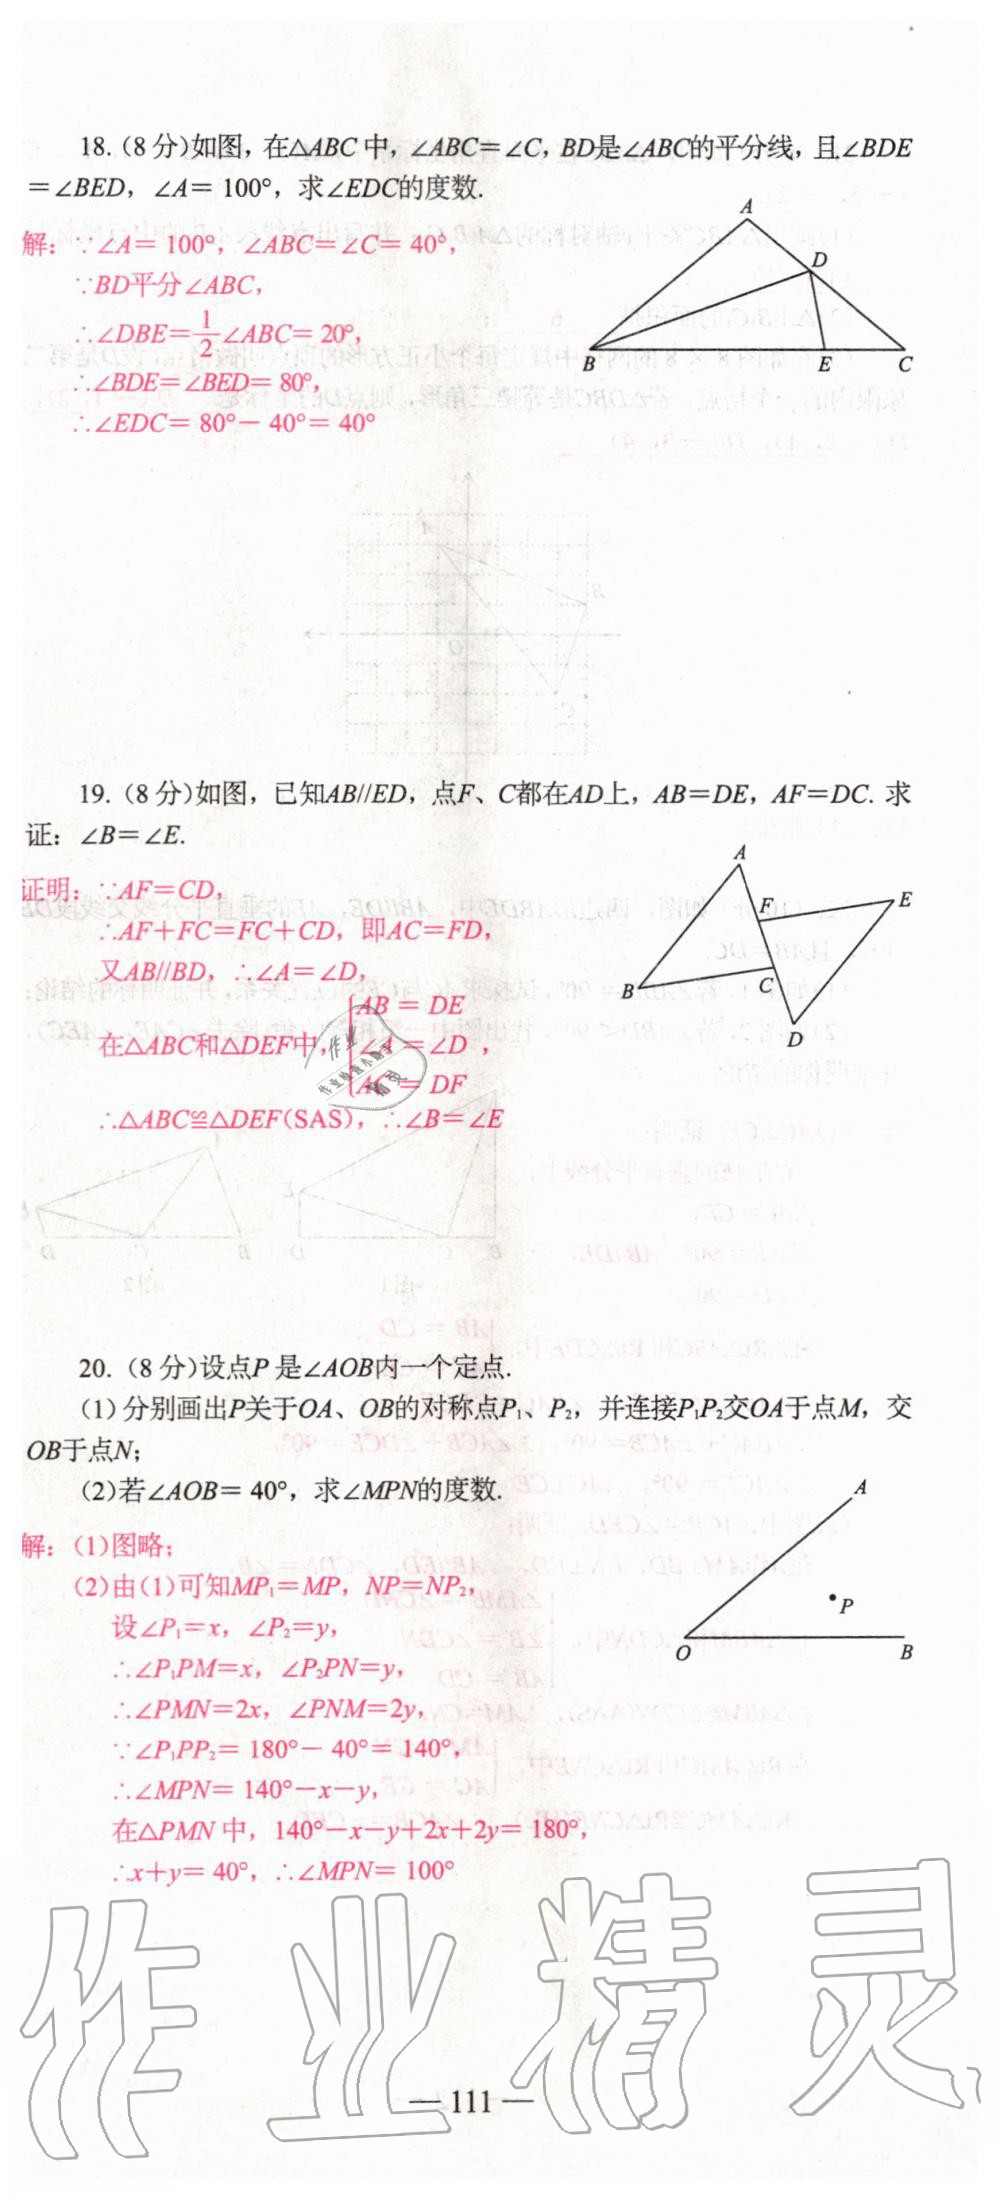 18. (8分)如图，在△ABC中，∠ABC=∠C，BD是∠ABC的平分线，且∠BDE
=∠BED，∠A=100°，求∠EDC的度数.
解：∵∠A=100°，∠ABC=∠C=40°，
∵BD平分∠ABC，
∴∠DBE=1/2∠ABC=20°，
∴∠BDE=∠BED=80°，
∴∠EDC=80°-40°=40°
A
D
B
E
C
19. (8分)如图，已知AB//ED，点F、C都在AD上，AB=DE，AF=DC. 求
证：∠B=∠E.
证明：∵AF=CD，
∴AF+FC=FC+CD，即AC=FD，
又AB//BD，∴∠A=∠D，
AB = DE
在△ABC和△DEF中，∠A = ∠D，
AC = DF
∴△ABC≌△DEF(SAS)，∴∠B=∠E
A
F
E
B
C
D
20. (8分)设点P是∠AOB内一个定点.
(1)分别画出P关于OA、OB的对称点P₁、P₂，并连接P₁P₂交OA于点M，交
OB于点N；
(2)若∠AOB=40°，求∠MPN的度数.
解：(1)图略；
(2)由(1)可知MP₁=MP，NP=NP₂，
设∠P₁=x，∠P₂=y，
∴∠P₁PM=x，∠P₂PN=y，
∴∠PMN=2x，∠PNM=2y，
∵∠P₁PP₂=180°-40°=140°，
∴∠MPN=140°-x-y，
在△PMN中，140°-x-y+2x+2y=180°，
∴x+y=40°，∴∠MPN=100°
A
P
O
B
作业精灵
— 111 —